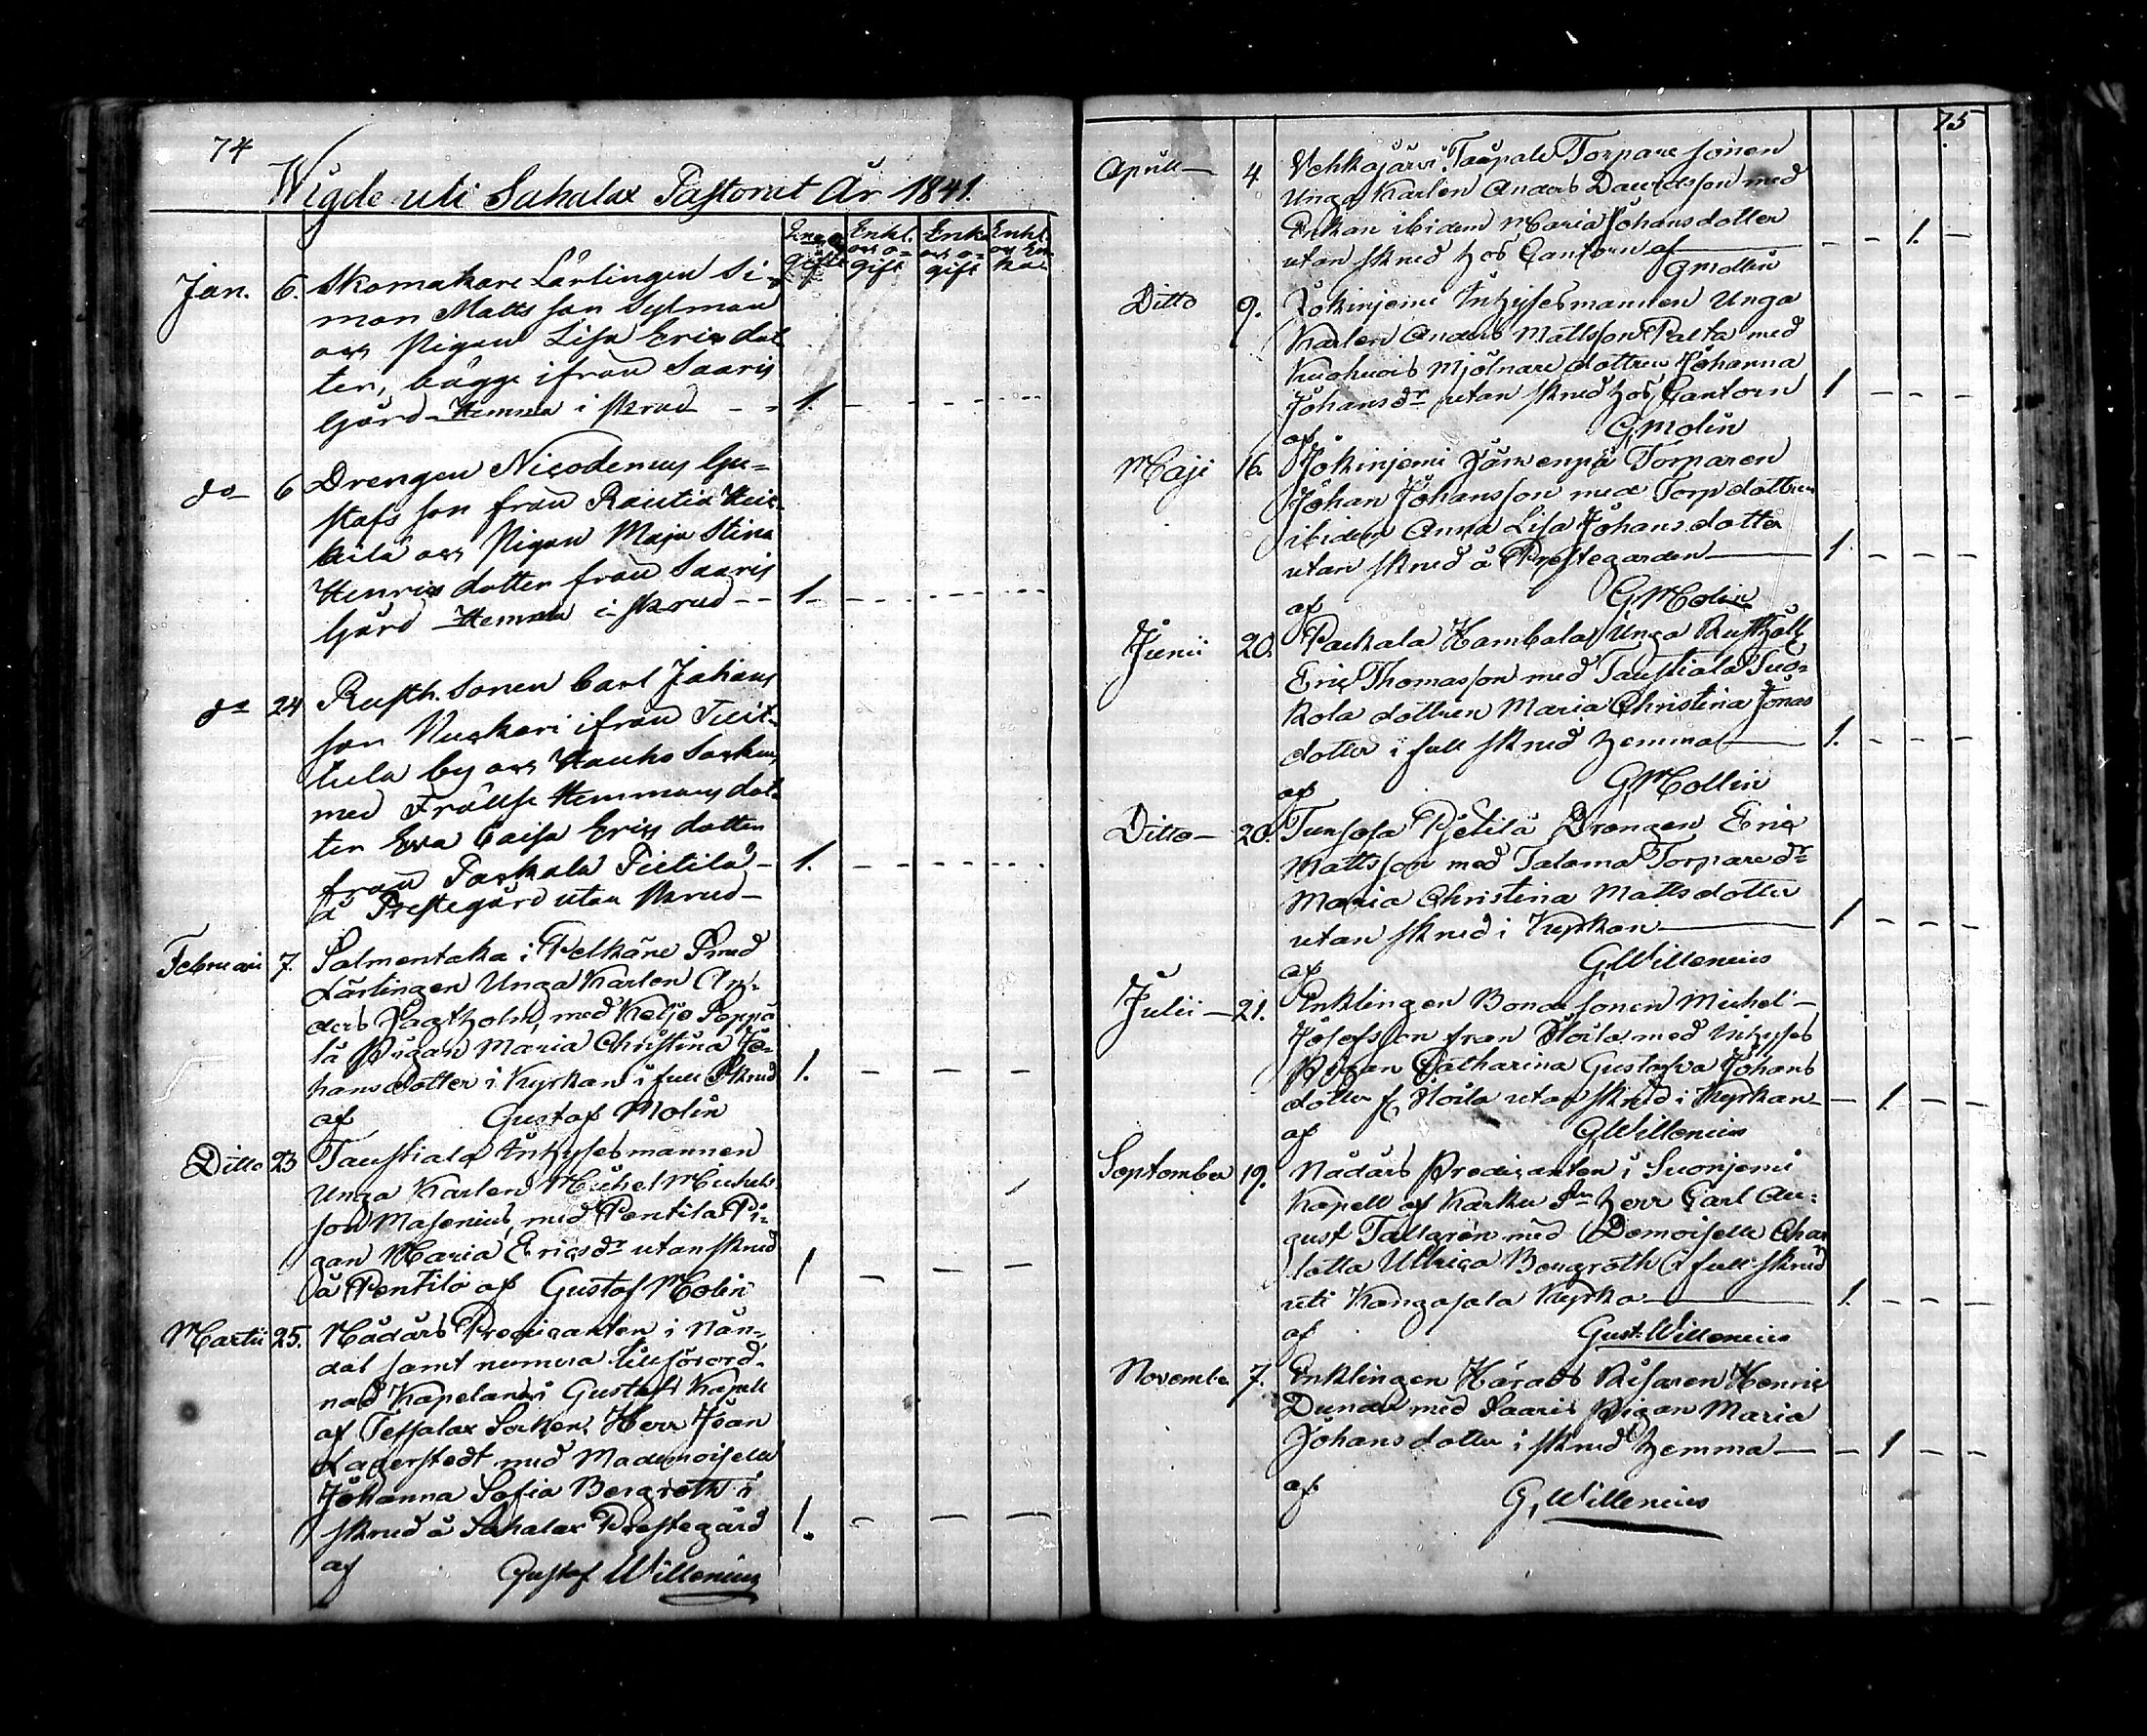 74
Wigde uti Sahalax Pastorat År 1841.
Enkl. och o-gift
Enka och o-gift
Enkl. och Enkor
Jan. 6. Skomakare Lärlingen Si-
mon Matts son Sylman
och Pigan Lisa Erics dot
ter, bägge ifrån Saaris
Gård - Hemma i skrud - - 1. - - - -
do 6 Drengen Nicodemus Gu-
stafs son från Rautia Hei-
kilä och Pigan Maja Stina
Henrics dotter från Saaris
Gård - Hemma i skrud - - 1. - - - -
do 24 Rusth. Sonen Carl Johans
son Nuckari ifrån Tuit-
tula by och Hauho Sockn
med Frällse Hemmans dot-
ter Eva Caisa Erics dotter
från Paskala Pietilä - 1. - - - -
å Prestegård utan skrud -
Februari 7. Salmentaka i Pelkäne
Lärlingen Unga Karlen An-
ders Jagtholm, med Keljo Seppä
lä Pigan Maria Christina Jo-
hansdotter i Kyrkan i full Skrud 1. - - -
af Gustaf Molin
Ditto 23 Taustiala Inhysesmannen
Unga Karlen Michel Michels
son Masenius, med Pentila Pi-
gan Maria Ericsdr utan skrud
å Pentilä af Gustaf Molin 1 - - -
Martii 25. Nådårs Predicanten i Nån-
dal samt numera tillförord-
nad Kapelan i Gustafs Kapell
af Tefsalax Socken, Herr Joan
Lagerstedt med Mademoiselle
Johanna Sofia Bergroth i
skrud å Sahalax Prestegård 1. - - -
af Gustaf Willenius
75
Aprill - 4 Vehkajärvi Taapala Torpare sonen
Unga Karlen Anders Davidsson med
Enkan ibidem Maria Johansdotter
utan skrud hos Cantorn af - - 1. -
G Molin
Ditto 9. Jokinjemi Inhysesmannen Unga
Karlen Anders Mattsson Palta med
Kuohuois Mjölnare dottren Johanna
Johansdr utan skrud hos Cantorn 1 - - -
af G Molin
Maji 16. Jokinjemi Järvenpä Torparen
Johan Johansson med Torp dottren
ibidem Anna Lisa Johans dotter
utan skrud å Prestegården 1. - - -
af G, Molin
Junii 20. Packala Hambala Unga Rusthåll
Eric Thomasson med Taustiala Suo-
kola dottren Maria Christina Jonas
dotter i full skrud hemma 1. - - -
af G, Mollin
Ditto - 20. Pjetilä Drengen Eric
Mattsson med Talama Torpare dr
Maria Christina Matts dotter
utan skrud i Kyrkan 1 - - -
af G, Willenius
Julii - 21. Enklingen Bonde sonen Michel
från med Inhyses
Pigan Catharina Gustafva Johans
dotter utan skrud i Kyrkan - - 1. - -
af G, Willenius
September 19. Nådårs Predicanten i Suonjemi
Kapell af Karku Sn Herr Carl Au-
gust Tallgrén med Demoiselle Char
lotta Ullrica Bergroth i full skrud
uti Kangasala Kyrka 1. - - -
af Gust. Willenius
November 7. Enklingen Härads Henric
Dunder med Saaris Pigan Maria
Johans dotter i skrud hemma - - 1 - -
af
G, Willenius